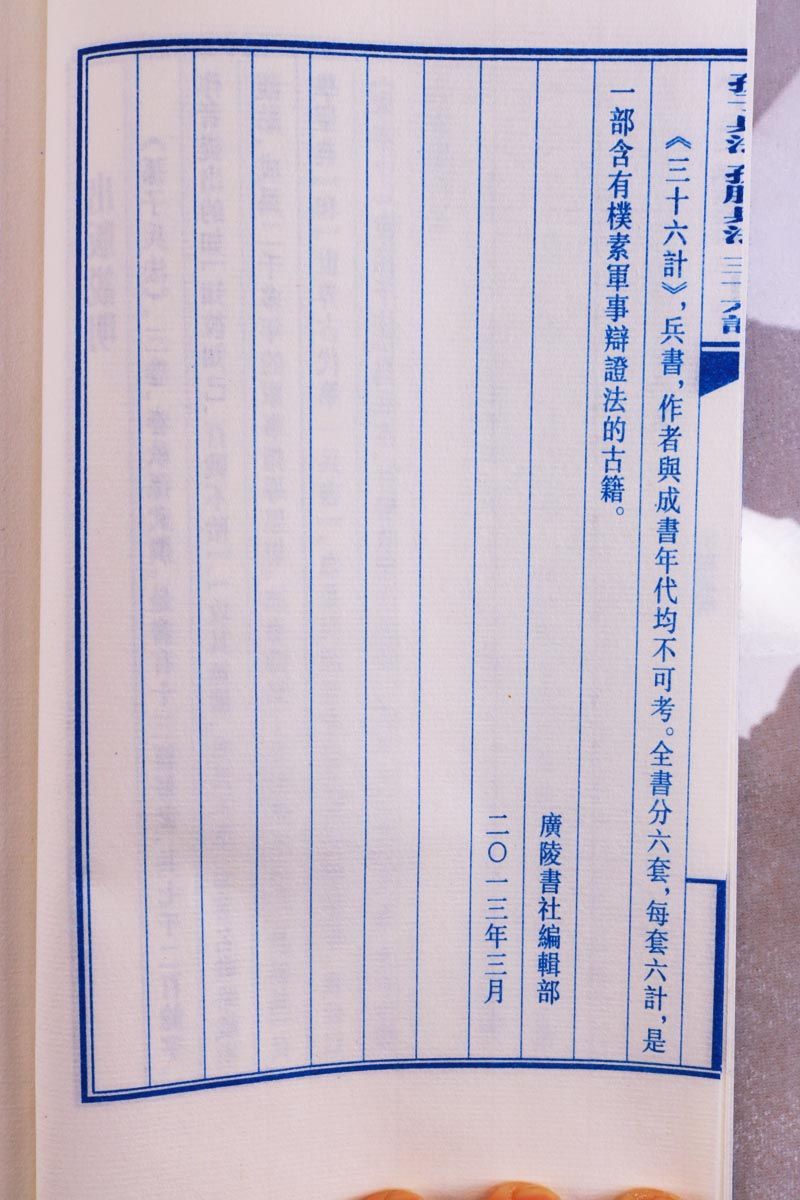 孫子兵法 孫臏兵法 三十六計
《三十六計》，兵書，作者與成書年代均不可考。全書分六套，每套六計，是
一部含有樸素軍事辯證法的古籍。
廣陵書社編輯部
二〇一三年三月